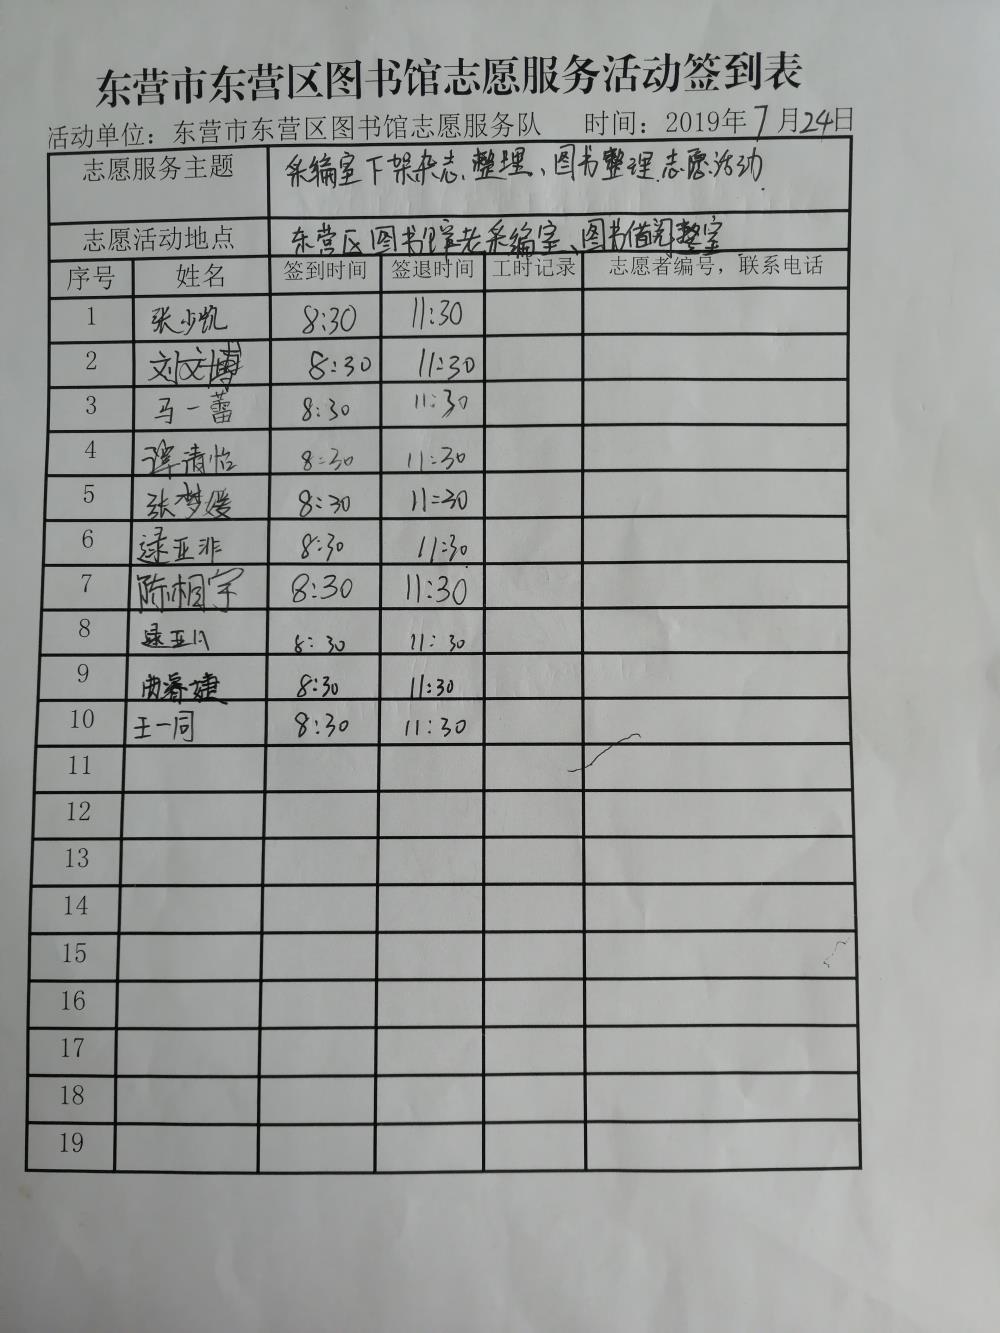 东营市东营区图书馆志愿服务活动签到表
活动单位：东营市东营区图书馆志愿服务队 时间：2019年7月24日
志愿服务主题 采编室下架杂志整理、图书整理志愿活动
志愿活动地点 东营区图书馆老采编室、图书借阅室
序号 姓名 签到时间 签退时间 工时记录 志愿者编号，联系电话
1 张少凯 8:30 11:30
2 刘文博 8:30 11:30
3 马一蕾 8:30 11:30
4 谭清怡 8:30 11:30
5 张梦媛 8:30 11:30
6 逯亚非 8:30 11:30
7 陈相宇 8:30 11:30
8 逯亚 8:30 11:30
9 曲睿婕 8:30 11:30
10 王一同 8:30 11:30
11
12
13
14
15
16
17
18
19